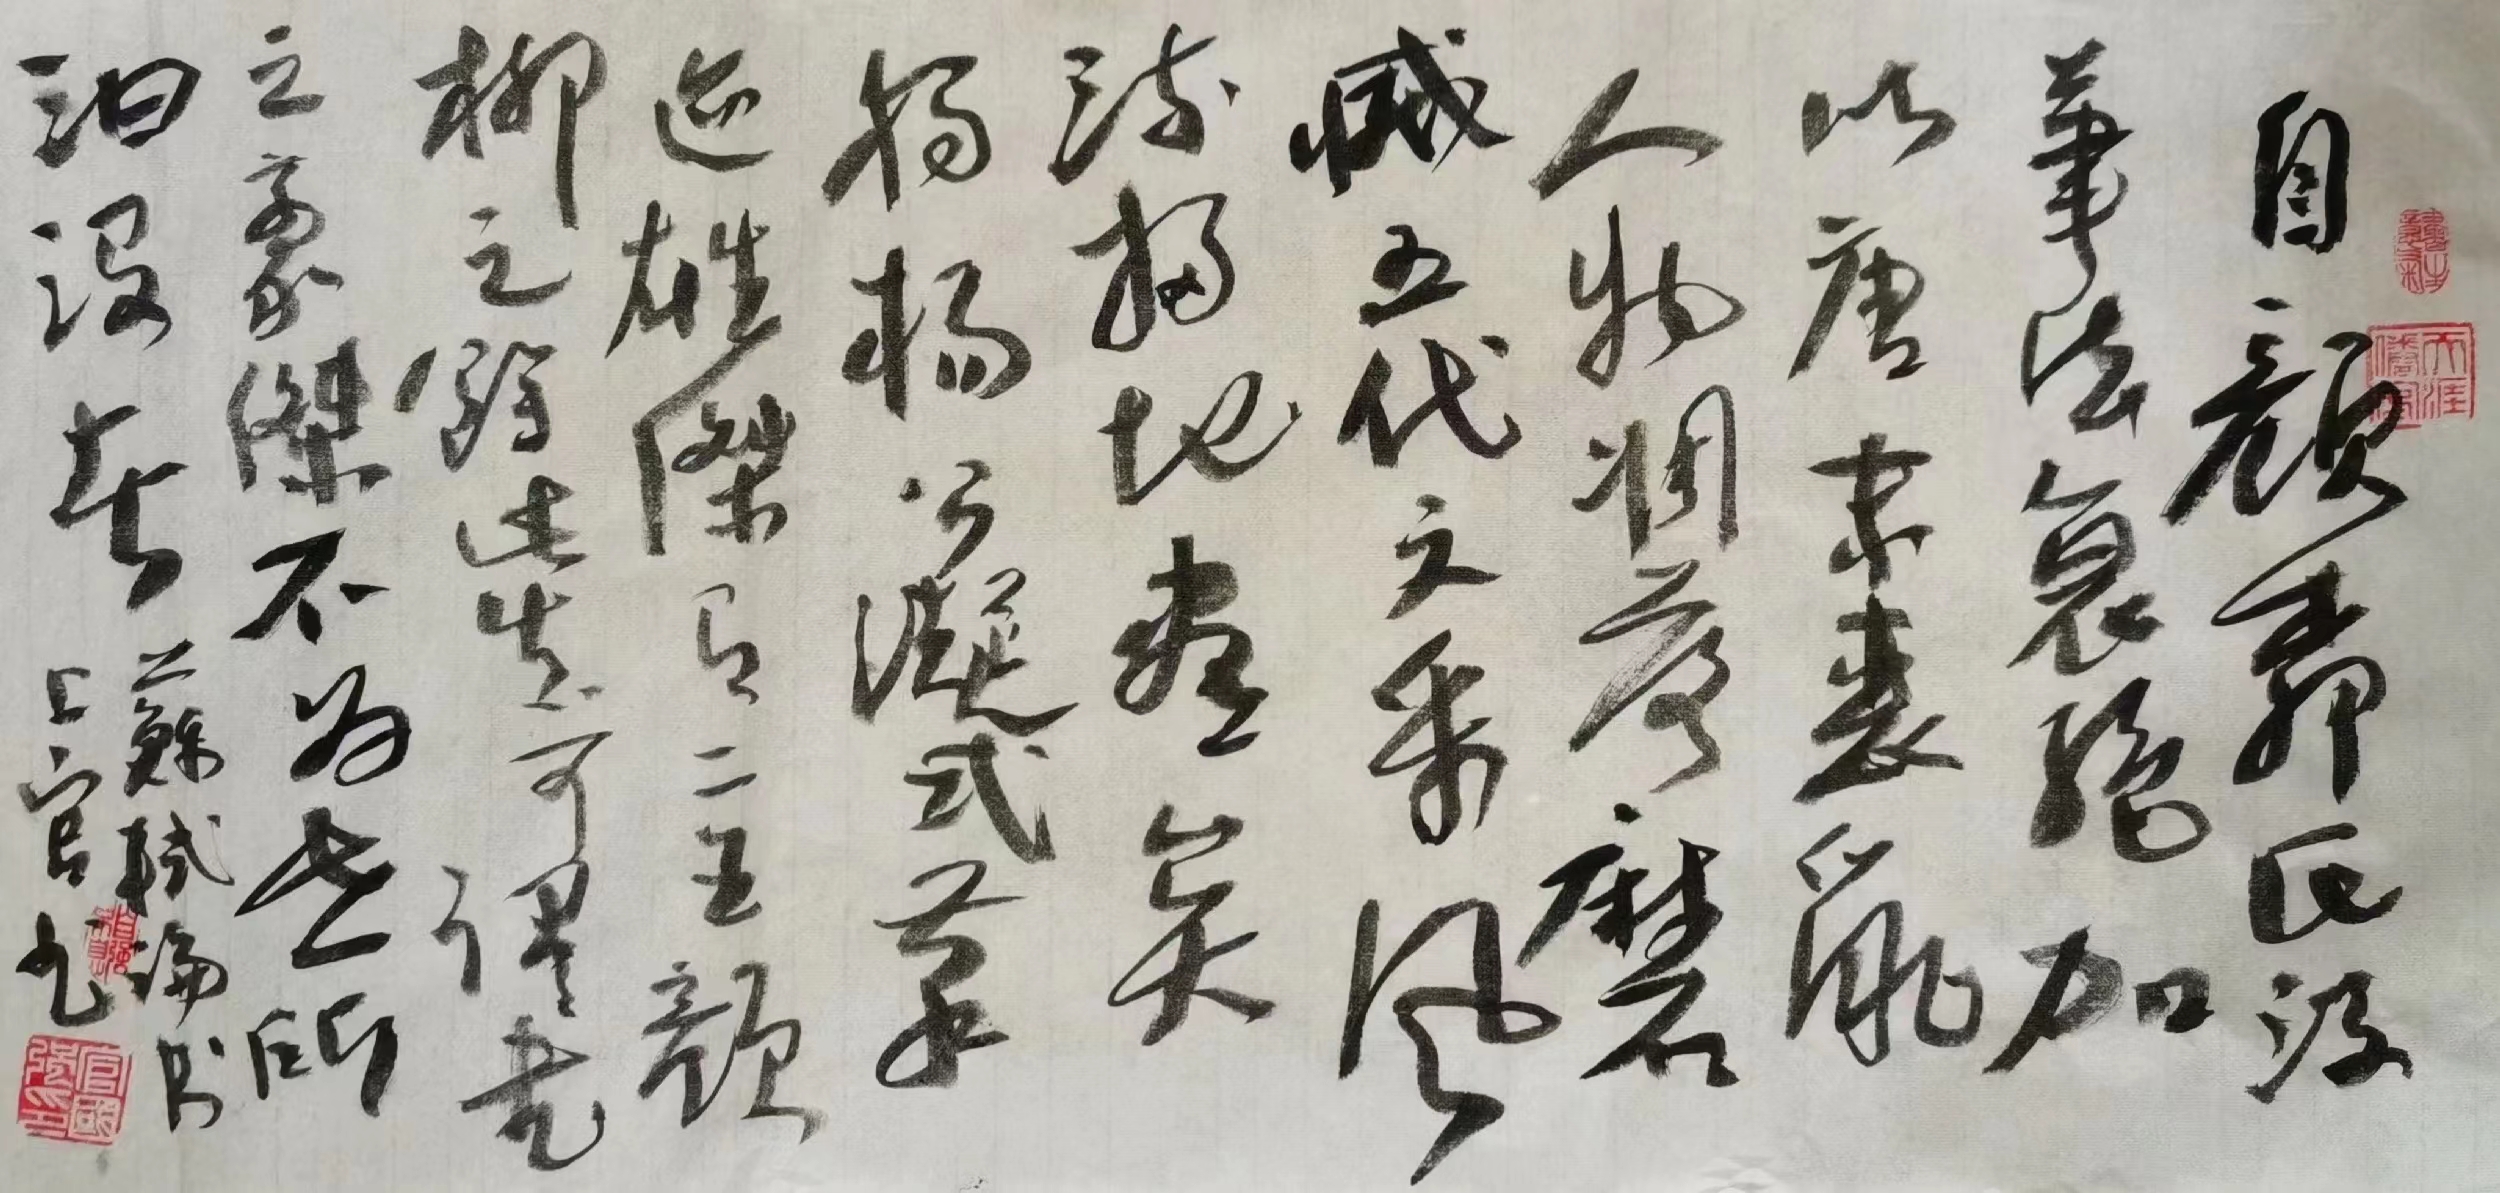 自顔柳氏没
筆法衰絶加
以唐末喪亂
人物凋落磨
滅五代文采風
流掃地盡矣
獨楊公凝式筆
迹雄傑有二王顔
柳之餘此真可謂書
之豪傑不為世所
汩没者
蘇軾論書
上官書